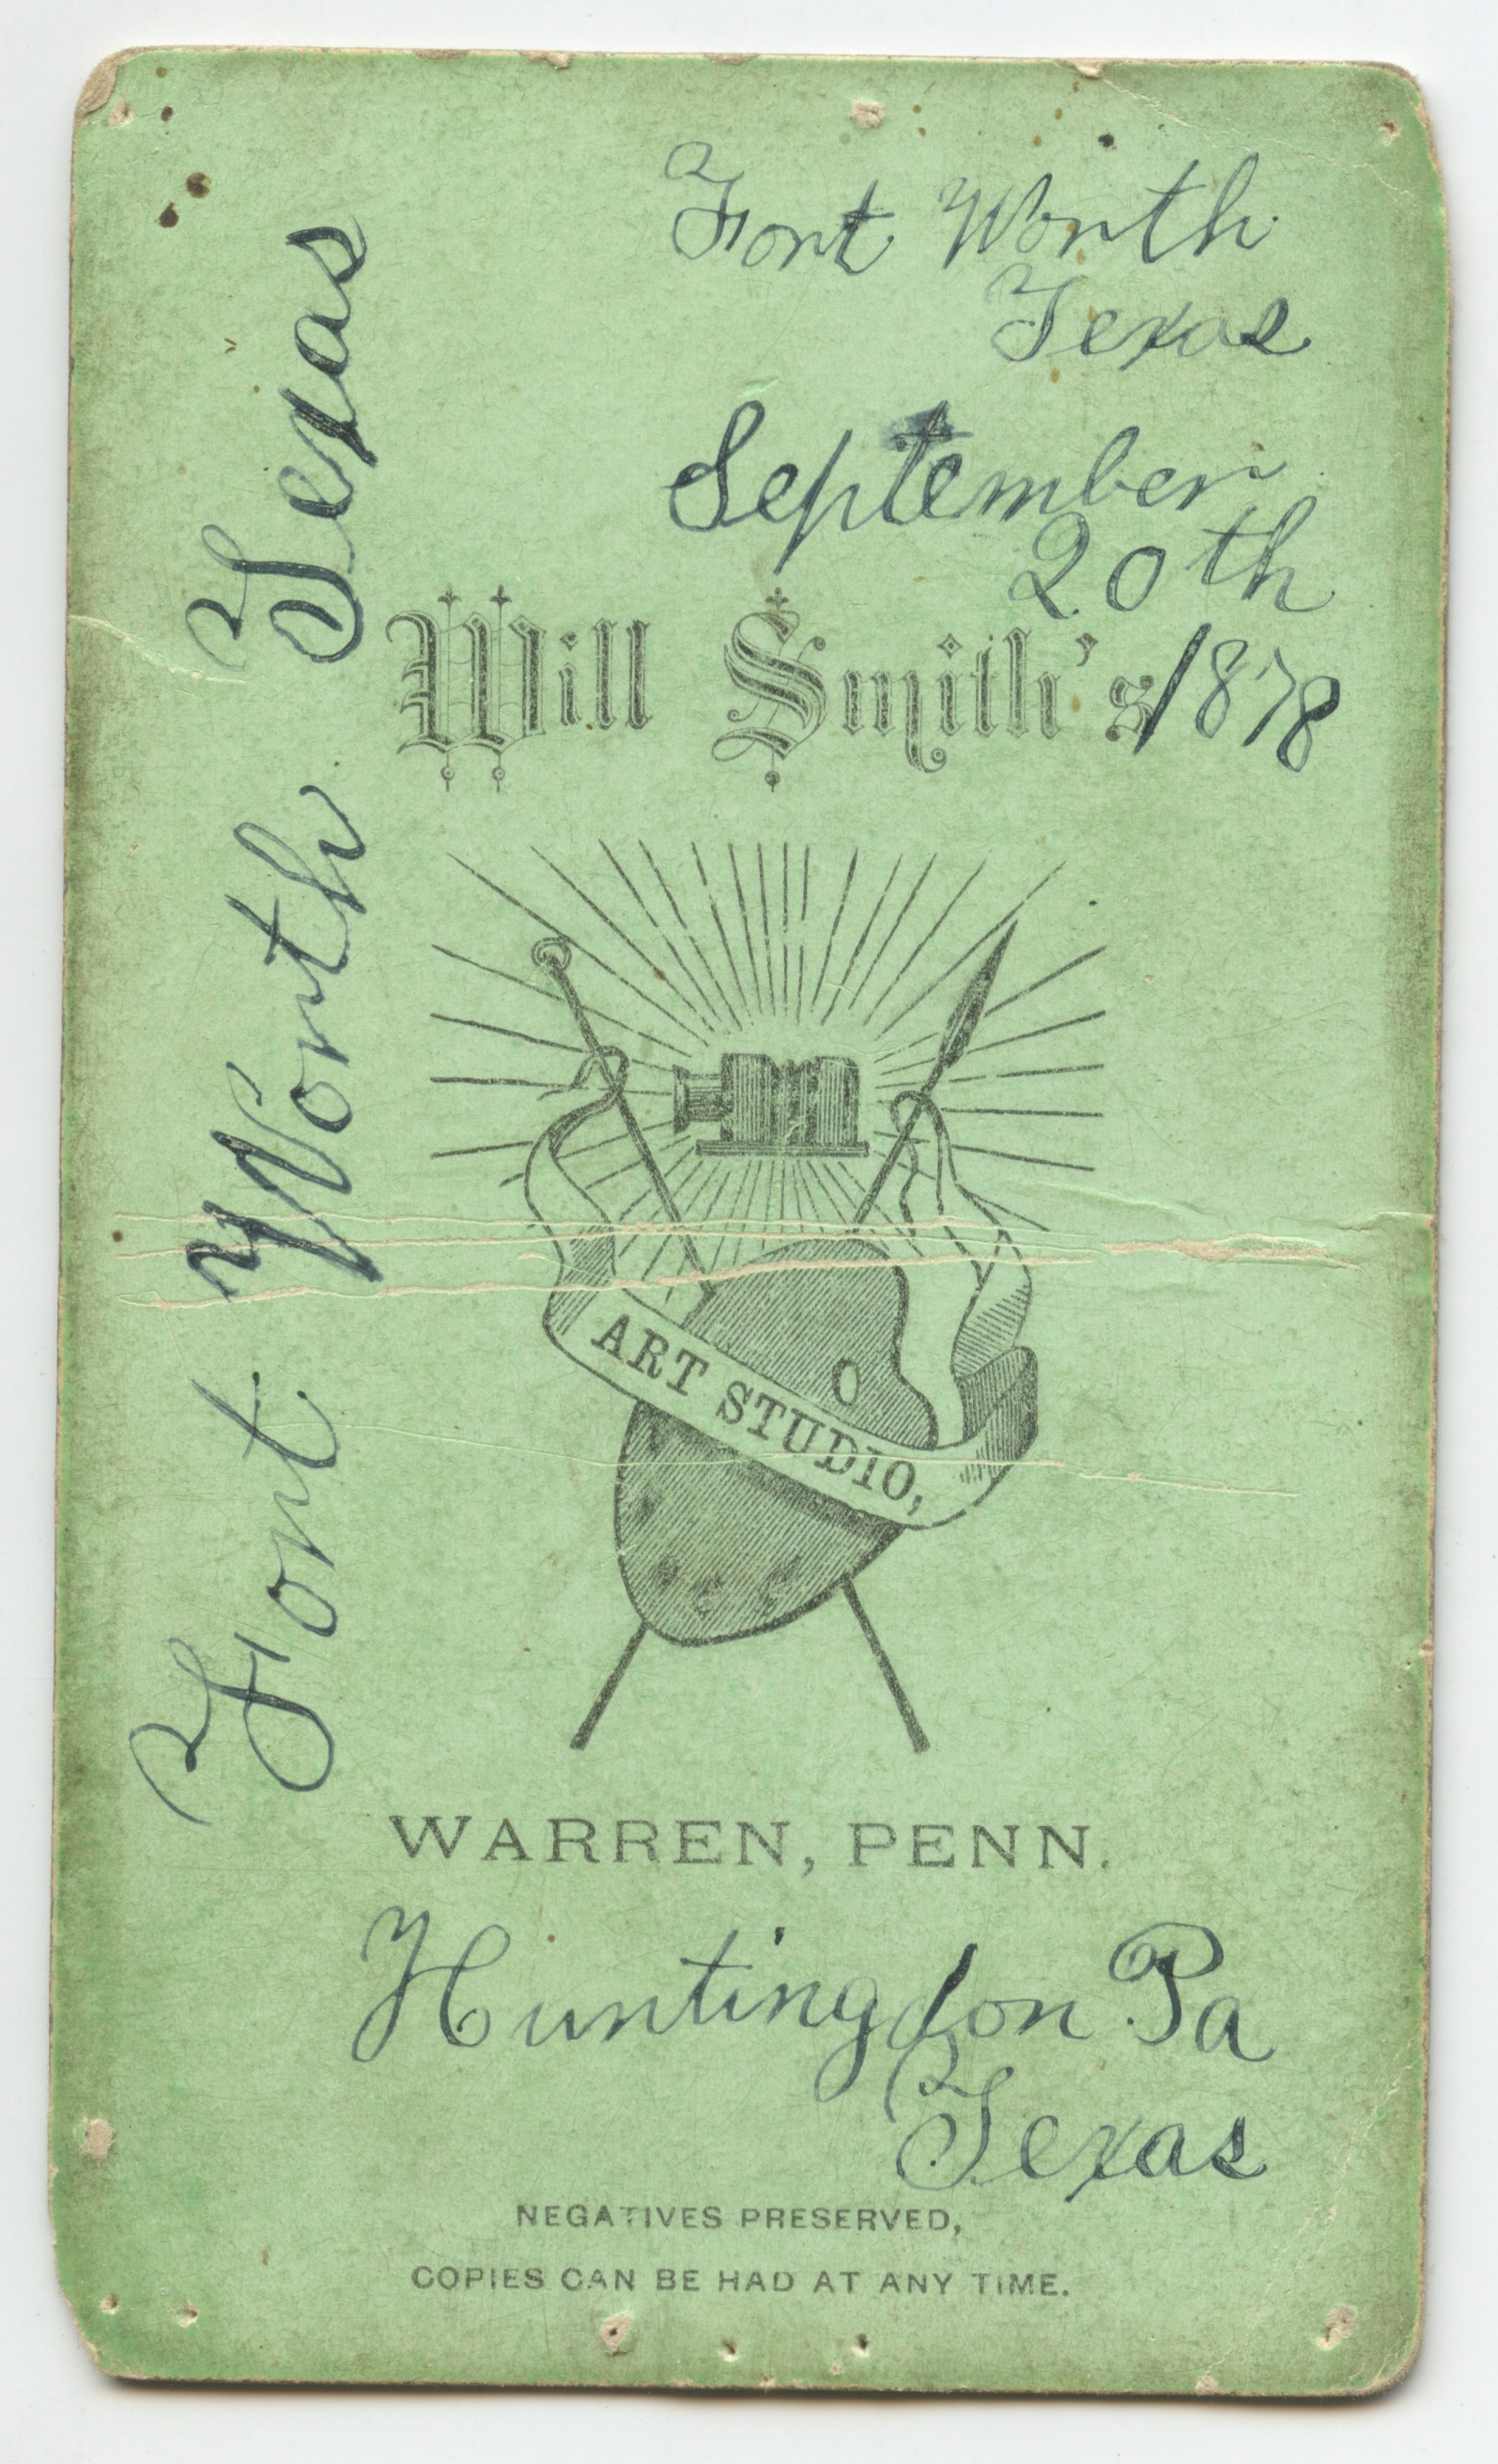 Fort Worth
Texas
September
20th
1878
Fort Worth Texas
Will Smith's
ART STUDIO,
WARREN, PENN.
Huntingdon Pa
Texas
NEGATIVES PRESERVED,
COPIES CAN BE HAD AT ANY TIME.